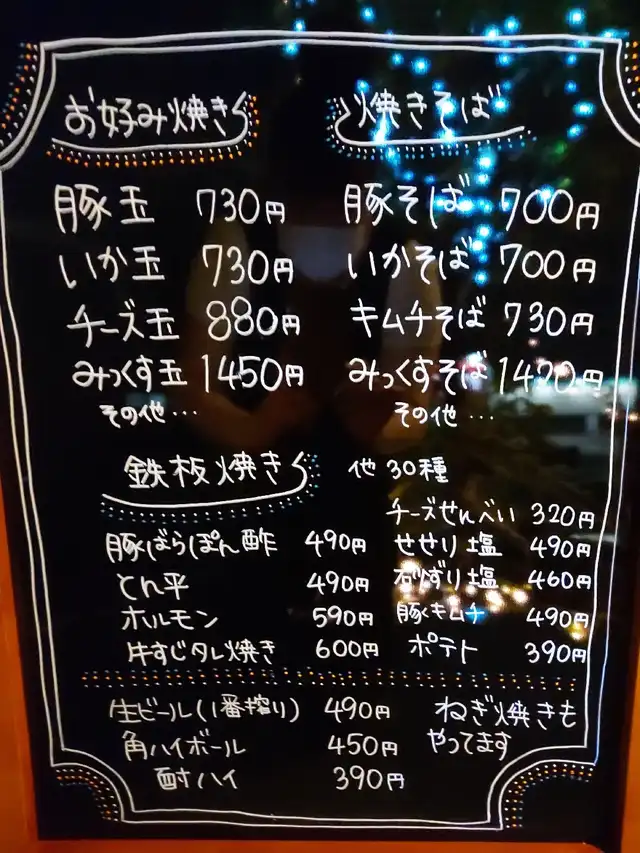 お好み焼き
豚玉 730円
いか玉 730円
チーズ玉 880円
みっくす玉 1450円
その他…
焼きそば
豚そば 700円
いかそば 700円
キムチそば 730円
みっくすそば 1420円
その他…
鉄板焼き 他30種
豚ばらぽん酢 490円
とん平 490円
ホルモン 590円
牛すじタレ焼き 600円
チーズせんべい 320円
せせり塩 490円
砂ずり塩 460円
豚キムチ 490円
ポテト 390円
生ビール(1番搾り) 490円
角ハイボール 450円
酎ハイ 390円
ねぎ焼きも
やってます